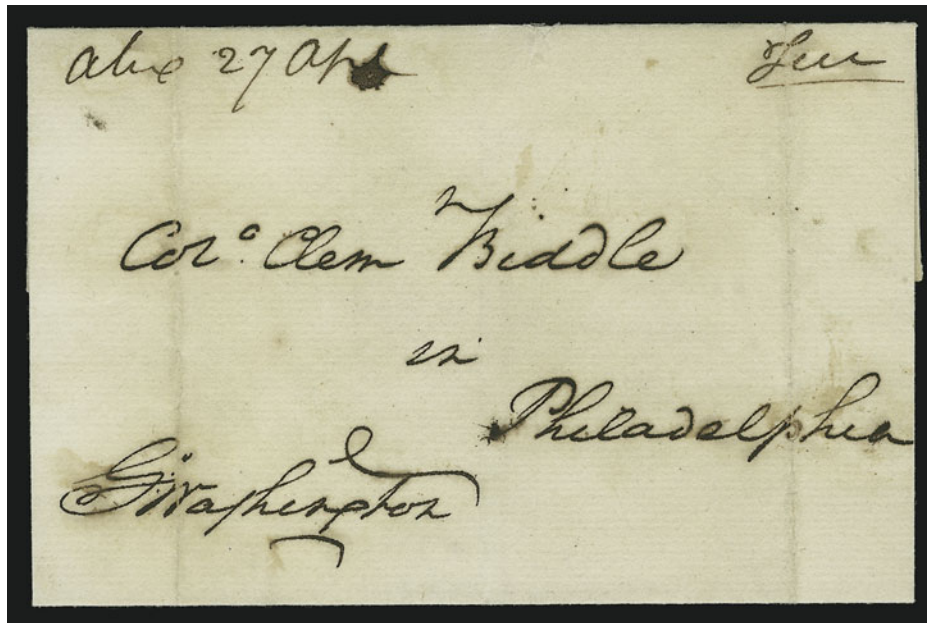 Alex 27 Apl
Free
Colo. Clem Biddle
in
Philadelphia
G:Washington